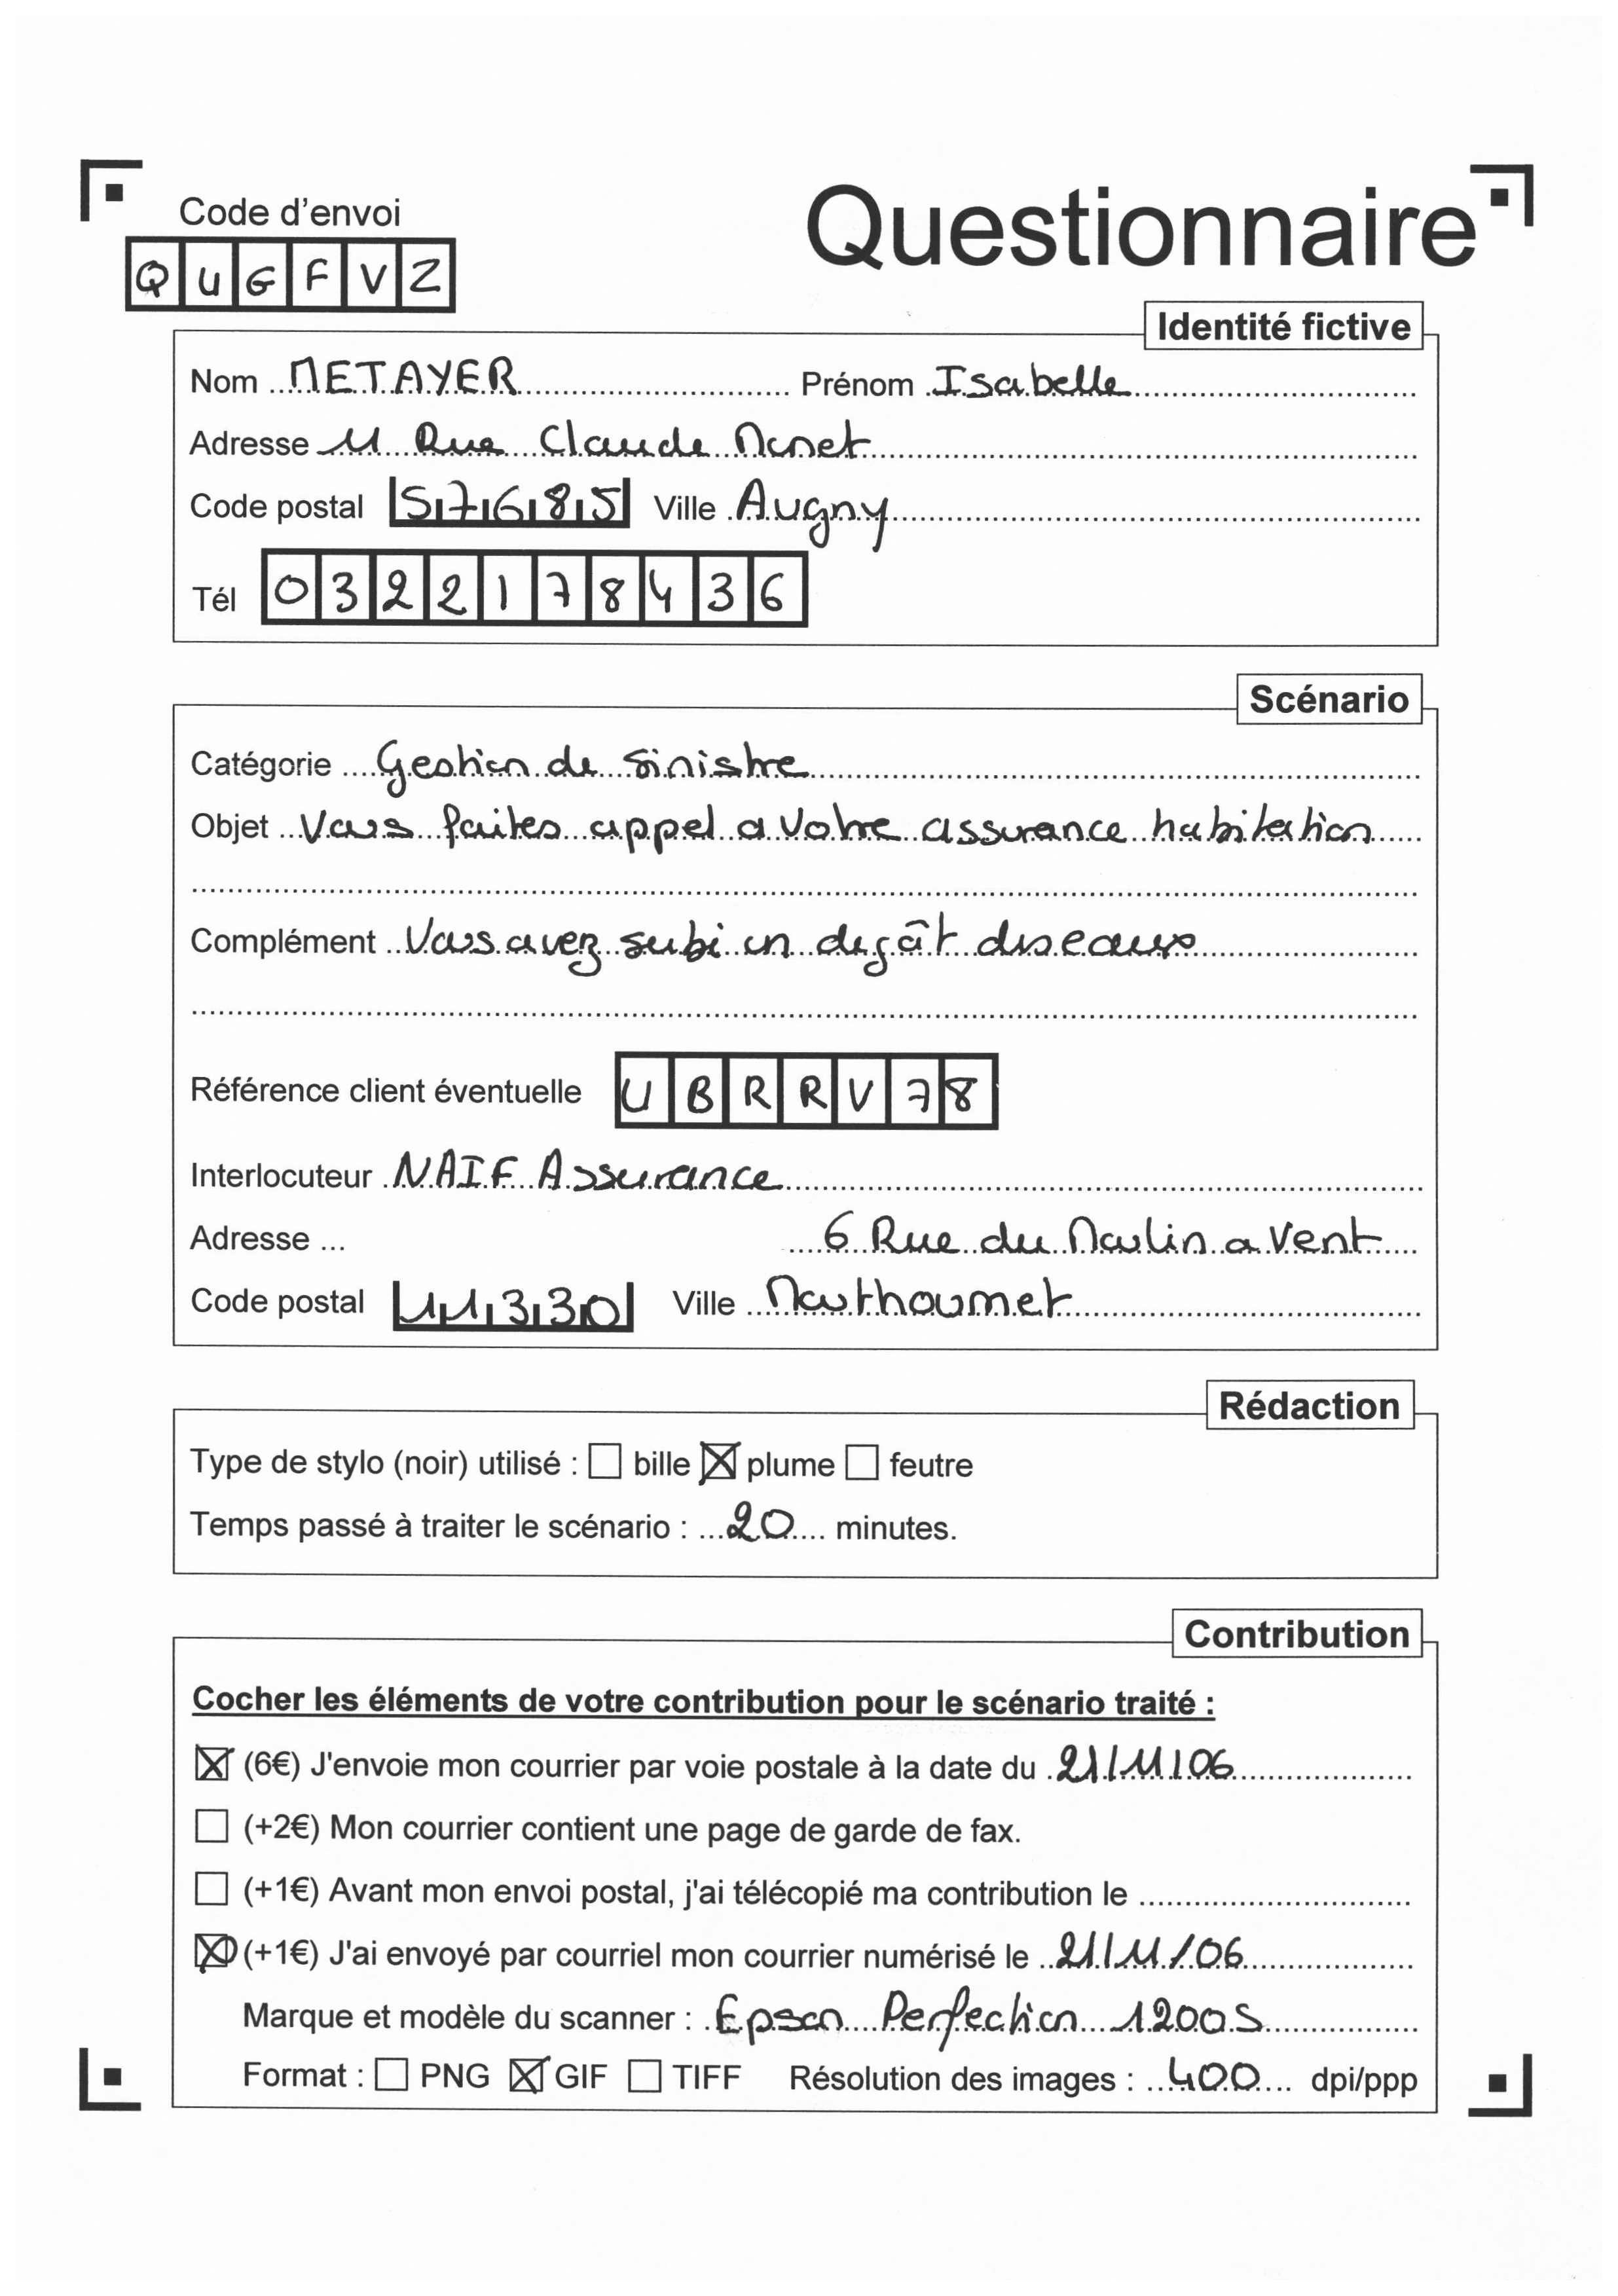 Code d'envoi
Questionnaire
QUGFVZ
Identité fictive
Nom METAYER Prénom Isabelle
Adresse 11 Rue Claude Monet
Code postal 57685 Ville Augny
Tél 0322178436
Scénario
Catégorie Gestion de Sinistre
Objet Vous faites appel a votre assurance habitation
Complément Vous avez subi un degât des eaux
Référence client éventuelle UBRRV78
Interlocuteur NAIF Assurance
Adresse ... 6 Rue du Moulin a Vent
Code postal 11330 Ville Mouthoumet
Rédaction
Type de stylo (noir) utilisé : ☐ bille ☒ plume ☐ feutre
Temps passé à traiter le scénario : 20 minutes.
Contribution
Cocher les éléments de votre contribution pour le scénario traité :
☒ (6€) J'envoie mon courrier par voie postale à la date du 21/11/06
☐ (+2€) Mon courrier contient une page de garde de fax.
☐ (+1€) Avant mon envoi postal, j'ai télécopié ma contribution le
☒ (+1€) J'ai envoyé par courriel mon courrier numérisé le 21/11/06
Marque et modèle du scanner : Epson Perfection 1200S
Format : ☐ PNG ☒ GIF ☐ TIFF Résolution des images : 400 dpi/ppp